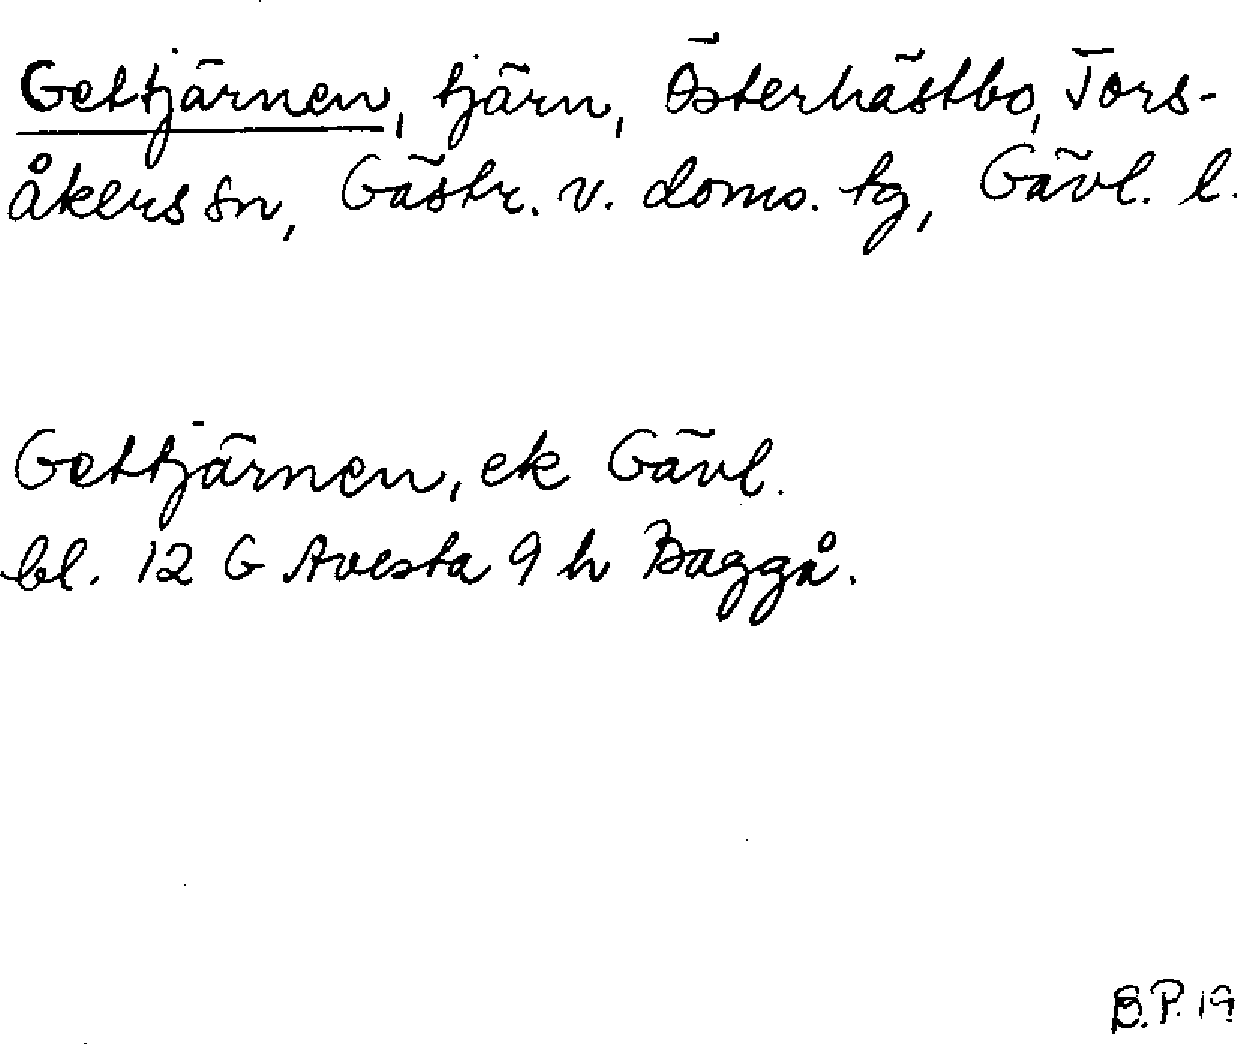 Gettjärnen, tjärn, Österhästbo, Tors-
åkers sn, Gästr. v. doms. tg, Gävl. l.
Gettjärnen, ek Gävl.
bl. 12 G Avesta 9 h Baggå.
B.P. 19